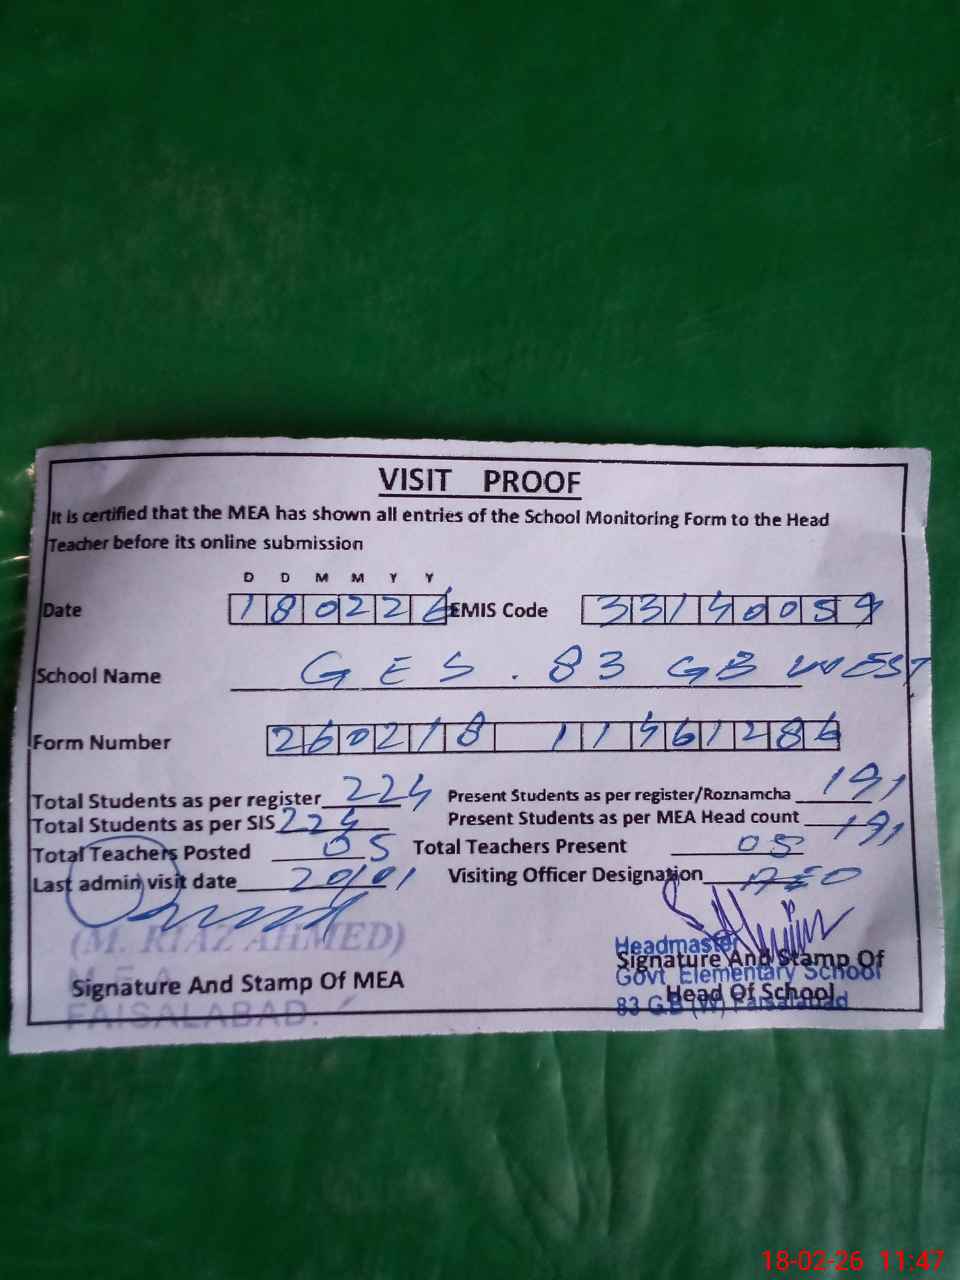 VISIT PROOF
It is certified that the MEA has shown all entries of the School Monitoring Form to the Head
Teacher before its online submission
D D M M Y Y
Date 180226 EMIS Code 33140059
School Name GES. 83 GB WEST
Form Number 260218 11461286
Total Students as per register 224 Present Students as per register/Roznamcha 191
Total Students as per SIS 224 Present Students as per MEA Head count 191
Total Teachers Posted 05 Total Teachers Present 05
Last admin visit date 20/01 Visiting Officer Designation AEO
(M. RIAZ AHMED)
M.E.A
FAISALABAD.
Signature And Stamp Of MEA
Headmaster
Govt. Elementary School
83 G.B (W) Faisalabad
Signature And Stamp Of
Head Of School
18-02-26 11:47